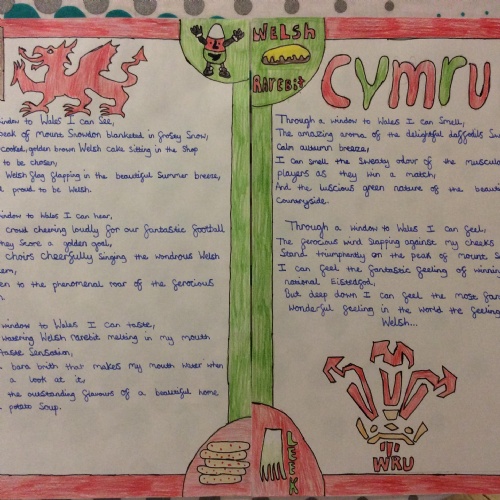 WELSH
RAREBIT
Cymru
window to Wales I can See,
peak of Mount Snowdon blanketed in frosty Snow,
cooked, golden brown Welsh cake sitting in the Shop
to be chosen,
Welsh flag flapping in the beautiful Summer breeze,
proud to be Welsh.
window to Wales I can hear,
crowd cheering loudly for our fantastic football
they Score a golden goal,
choirs cheerfully Singing the wondrous Welsh
to the phenomenal roar of the ferocious
window to Wales I can taste,
watering Welsh rarebit melting in my mouth
taste Sensation,
bara brith that makes my mouth water when
a look at it
the outstanding flavours of a beautiful home
potato Soup.
Through a window to Wales I can Smell,
The amazing aroma of the delightful daffodils
Calm autumn breeze,
I can Smell the Sweaty odour of the muscula
players as they win a match,
And the luscious green nature of the beau
Countryside.
Through a window to Wales I can feel,
The ferocious wind Slapping against my cheeks
Stand triumphantly on the peak of mount S
I can feel the fantastic feeling of winning
national Eisteddfod,
But deep down I can feel the most fan
wonderful feeling in the world the feeling
Welsh...
LEEK
WRU